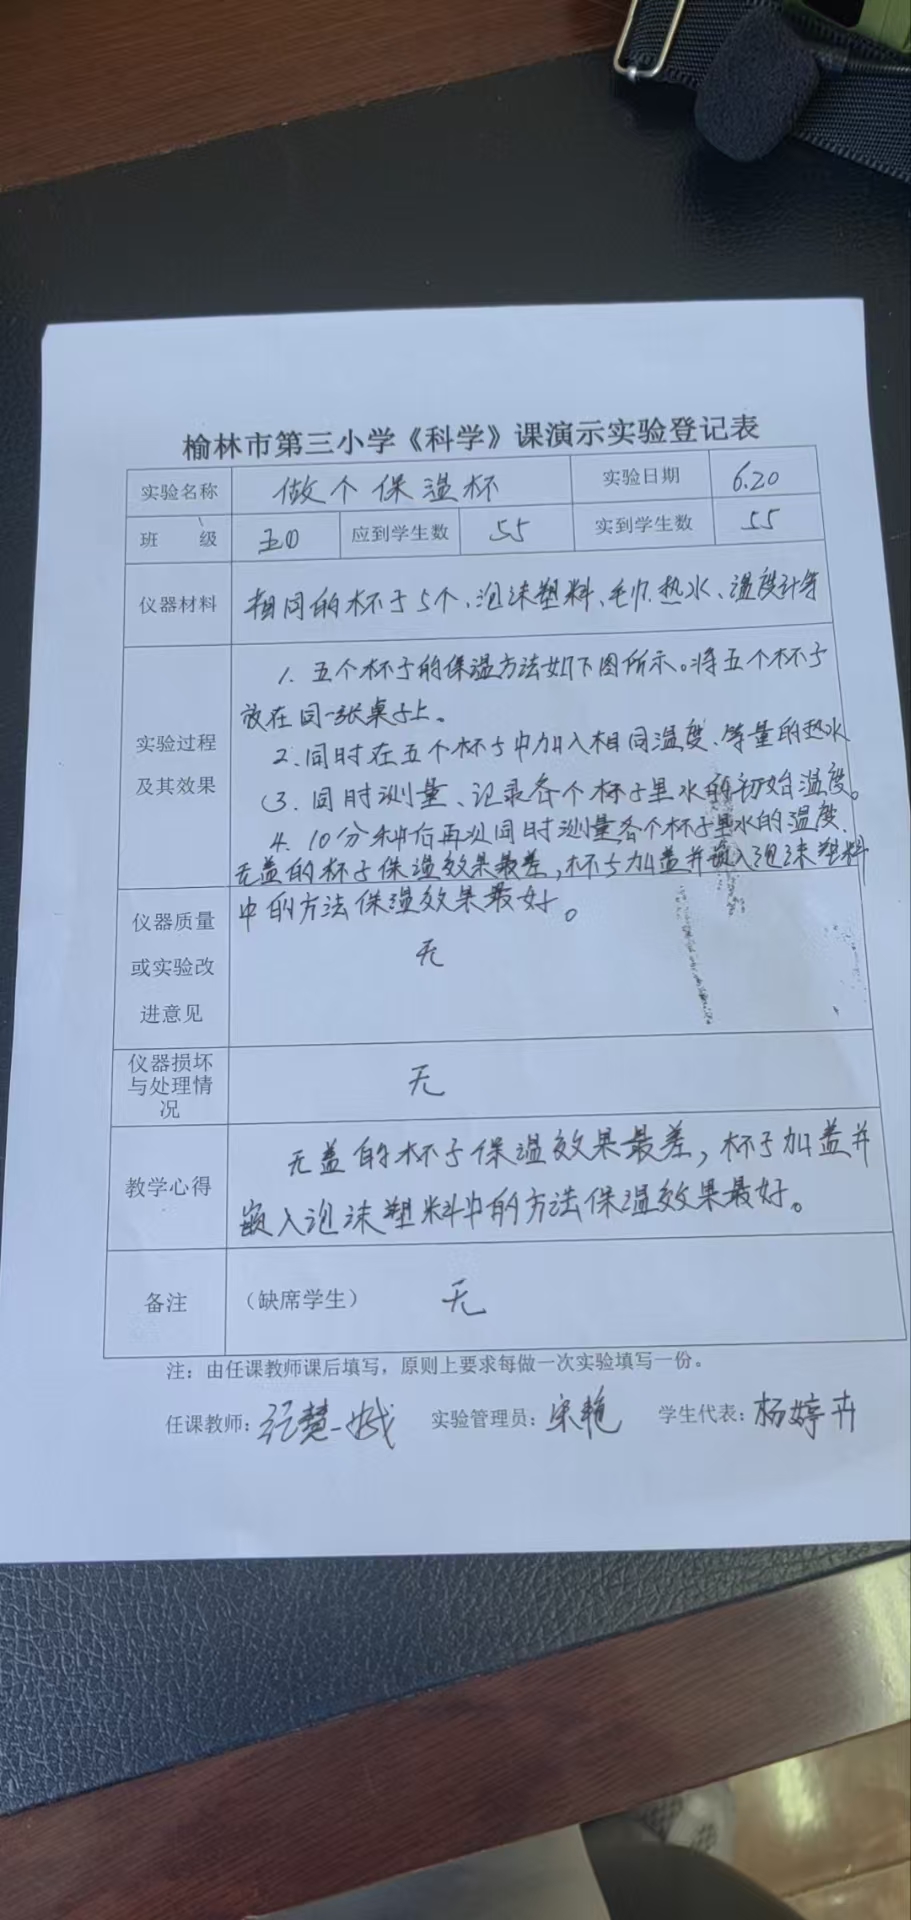 榆林市第三小学《科学》课演示实验登记表
实验名称 做个保温杯 实验日期 6.20
班 级 应到学生数 55 实到学生数 55
仪器材料 相同的杯子5个、泡沫塑料、毛巾、热水、温度计等
1. 五个杯子的保温方法如下图所示。将五个杯子
放在同一张桌子上。
实验过程
及其效果
2. 同时在五个杯子中加入相同温度、等量的热水
3. 同时测量、记录各个杯子里水的初始温度。
4. 10分钟后再次同时测量各个杯子里水的温度.
无盖的杯子保温效果最差,杯子加盖并嵌入泡沫塑料
中的方法保温效果最好。
仪器质量
或实验改
进意见
无
仪器损坏
与处理情
况
无
教学心得
无盖的杯子保温效果最差,杯子加盖并
嵌入泡沫塑料中的方法保温效果最好。
备注 (缺席学生) 无
注:由任课教师课后填写,原则上要求每做一次实验填写一份。
任课教师: 实验管理员:宋艳 学生代表:杨婷卉